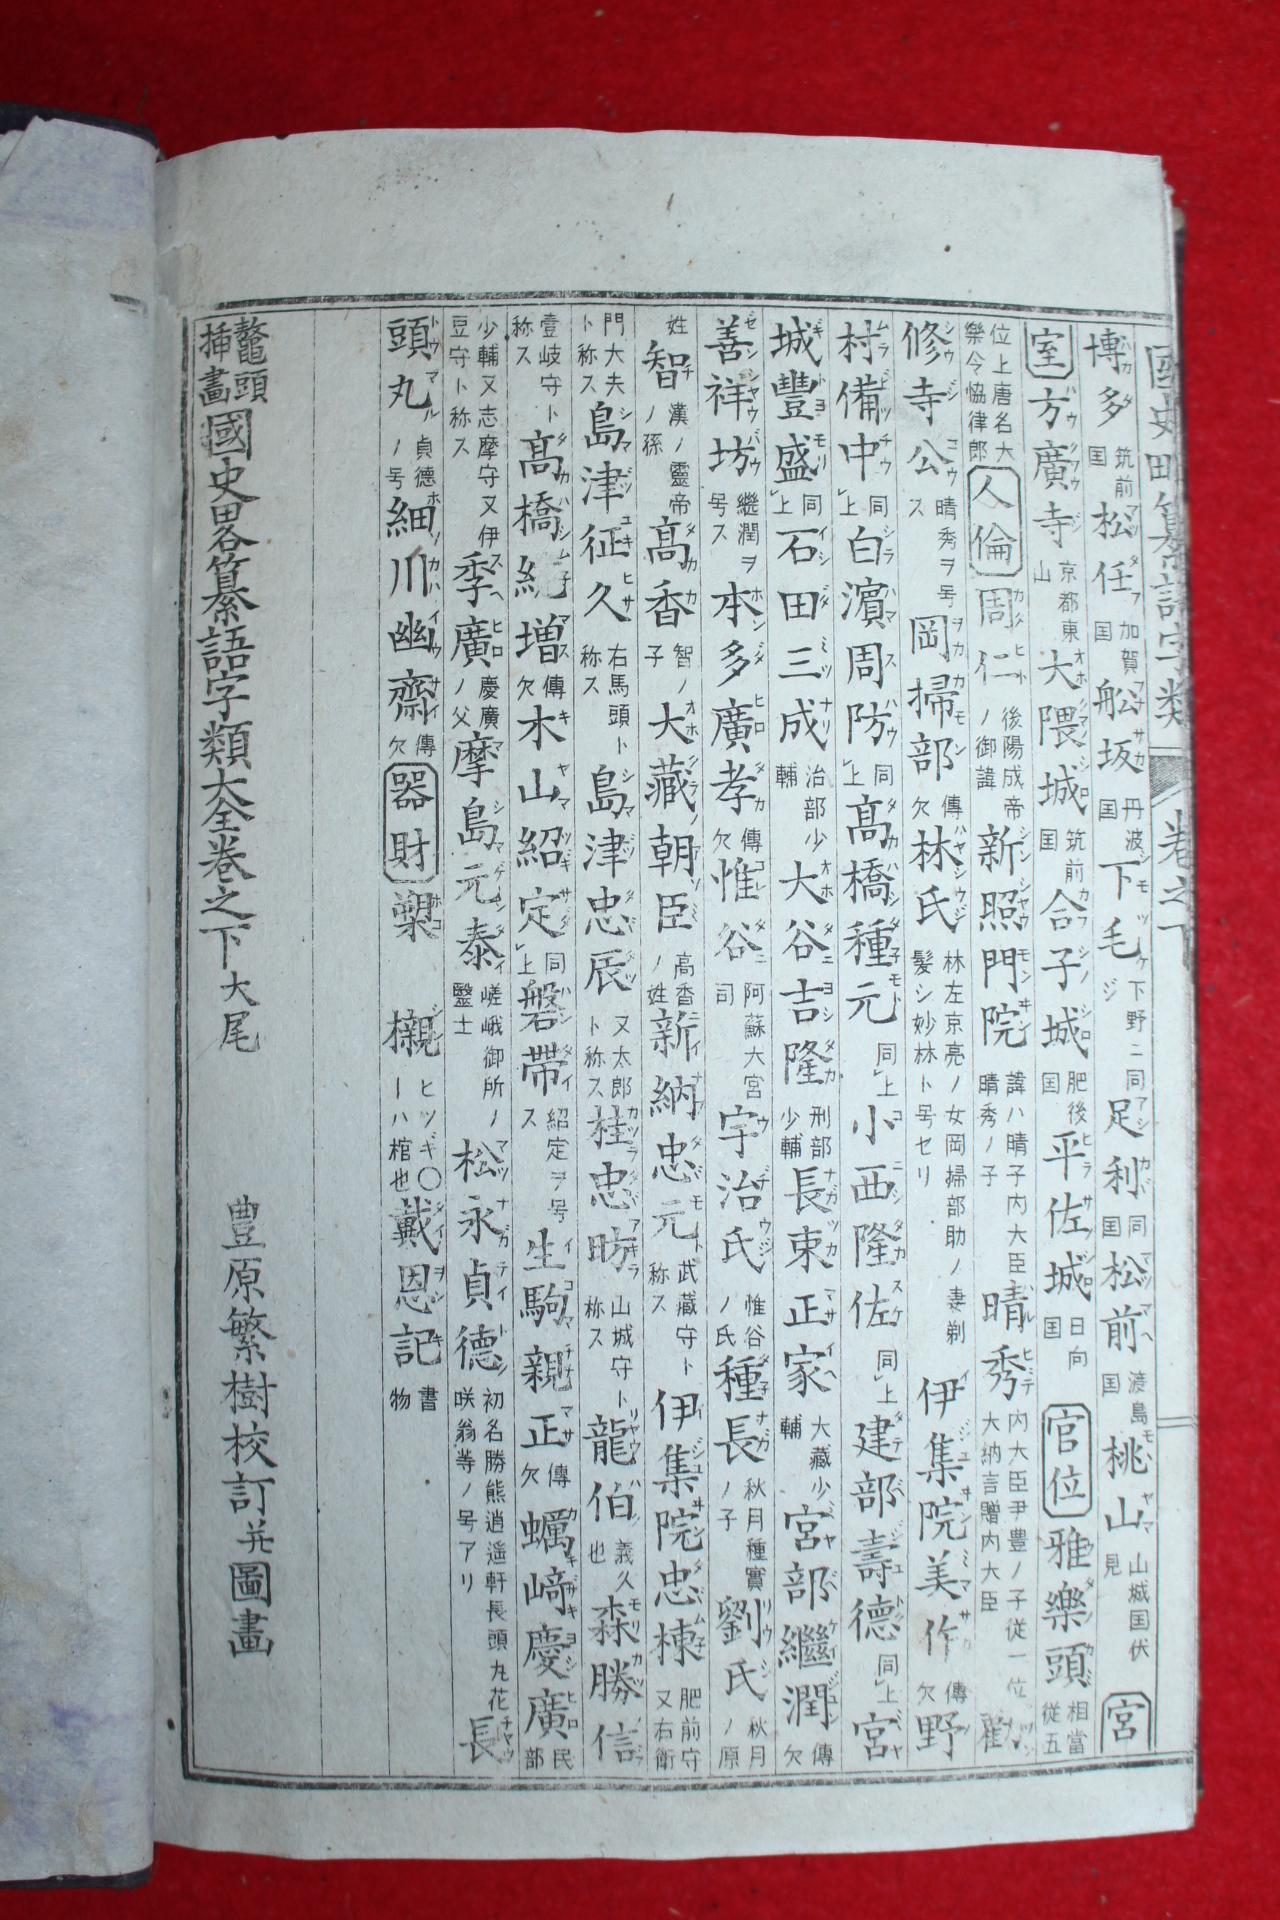 國史畧纂語字類 卷之下
博多 筑前国 松任 加賀国 船坂 丹波国 下毛 下野ニ同ジ 足利 同国 松前 渡島国 桃山 山城国伏見 宮
室 方廣寺 京都東山 大隈城 筑前国 合子城 肥後国 平佐城 日向国 官位 雅樂頭 相當従五
位上唐名大樂令恊律郎 人倫 周仁 後陽成帝ノ御諱 新照門院 諱ハ晴子内大臣晴秀ノ子 晴秀 内大臣尹豊ノ子従一位大納言贈内大臣 勸
修寺公 晴秀ヲ号ス 岡掃部 傳欠 林氏 林左京亮ノ女岡掃部助ノ妻剃髪シ妙林ト号セリ 伊集院美作 傳欠 野
村備中 同上 白濱周防 同上 髙橋種元 同上 小西隆佐 同上 建部壽德 同上 宮
城豐盛 同上 石田三成 治部少輔 大谷吉隆 刑部少輔 長束正家 大藏少輔 宮部繼潤 傳欠
善祥坊 繼潤ヲ号ス 本多廣孝 傳欠 惟谷 阿蘇大宮司 宇治氏 惟谷ノ氏 種長 秋月種實ノ子 劉氏 秋月ノ原
姓 智 漢ノ靈帝ノ孫 高香 智ノ子 大藏朝臣 高香ノ姓 新納忠元 武藏守ト称ス 伊集院忠棟 肥前守又右衛
門大夫ト称ス 島津征久 右馬頭ト称ス 島津忠辰 又太郎ト称ス 桂忠昉 山城守ト称ス 龍伯 義久也 森勝信
壹岐守ト称ス 髙橋紀増 傳欠 木山紹定 同上 磐帯 紹定ヲ号ス 生駒親正 傳欠 蠣﨑慶廣 民部
少輔又志摩守又伊豆守ト称ス 季廣 慶廣ノ父 摩島元泰 嵯峨御所ノ毉士 松永貞德 初名勝熊逍遥軒長頭丸花咲翁等ノ号アリ 長
頭丸 貞德ノ号 細川幽齋 傳欠 器財 槊 櫬 ヒツギ〇一ハ棺也 戴恩記 書物
鼇頭挿畫 國史畧纂語字類大全卷之下大尾 豊原繁樹校訂并圖畫